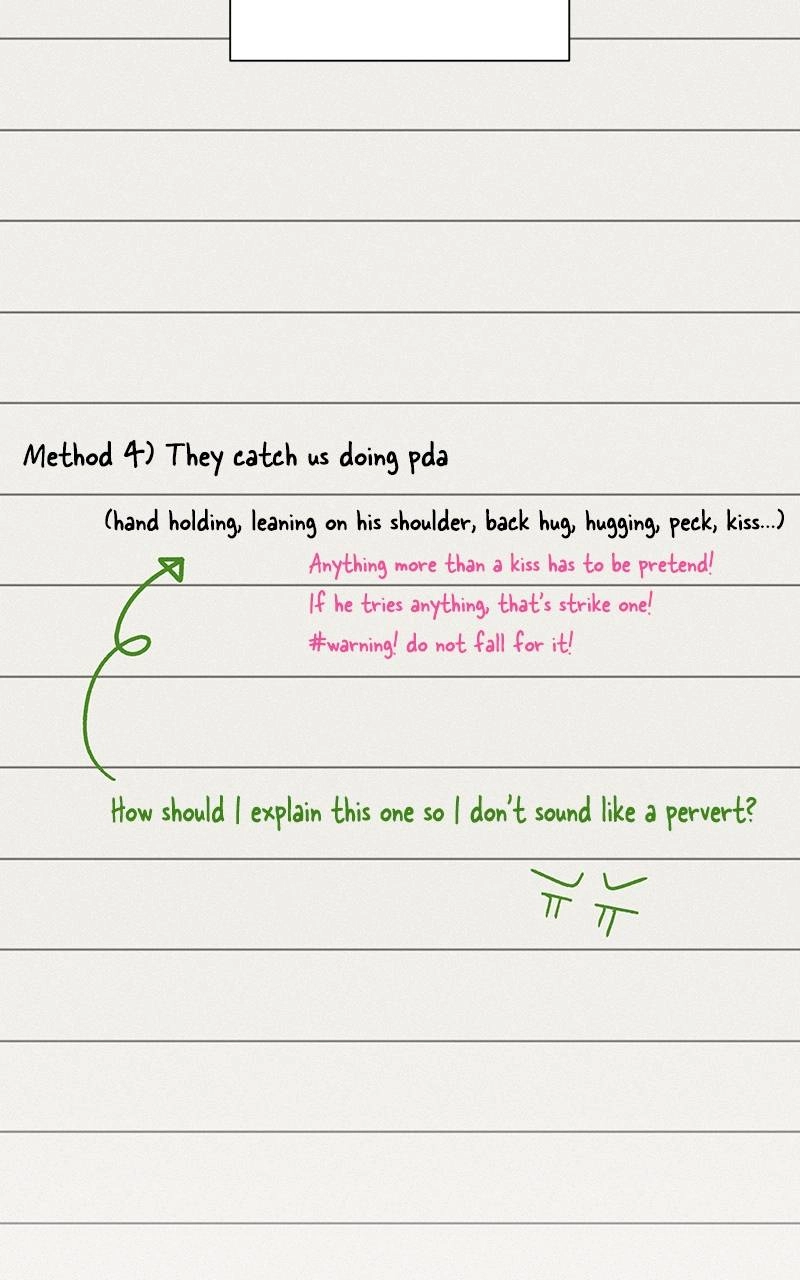 Method 4) They catch us doing pda
(hand holding, leaning on his shoulder, back hug, hugging, peck, kiss...)
Anything more than a kiss has to be pretend!
If he tries anything, that's strike one!
#warning! do not fall for it!
How should I explain this one so I don't sound like a pervert?